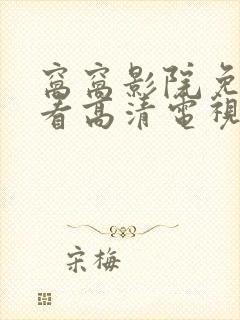 窝窝影院免
看高清电视
宋梅